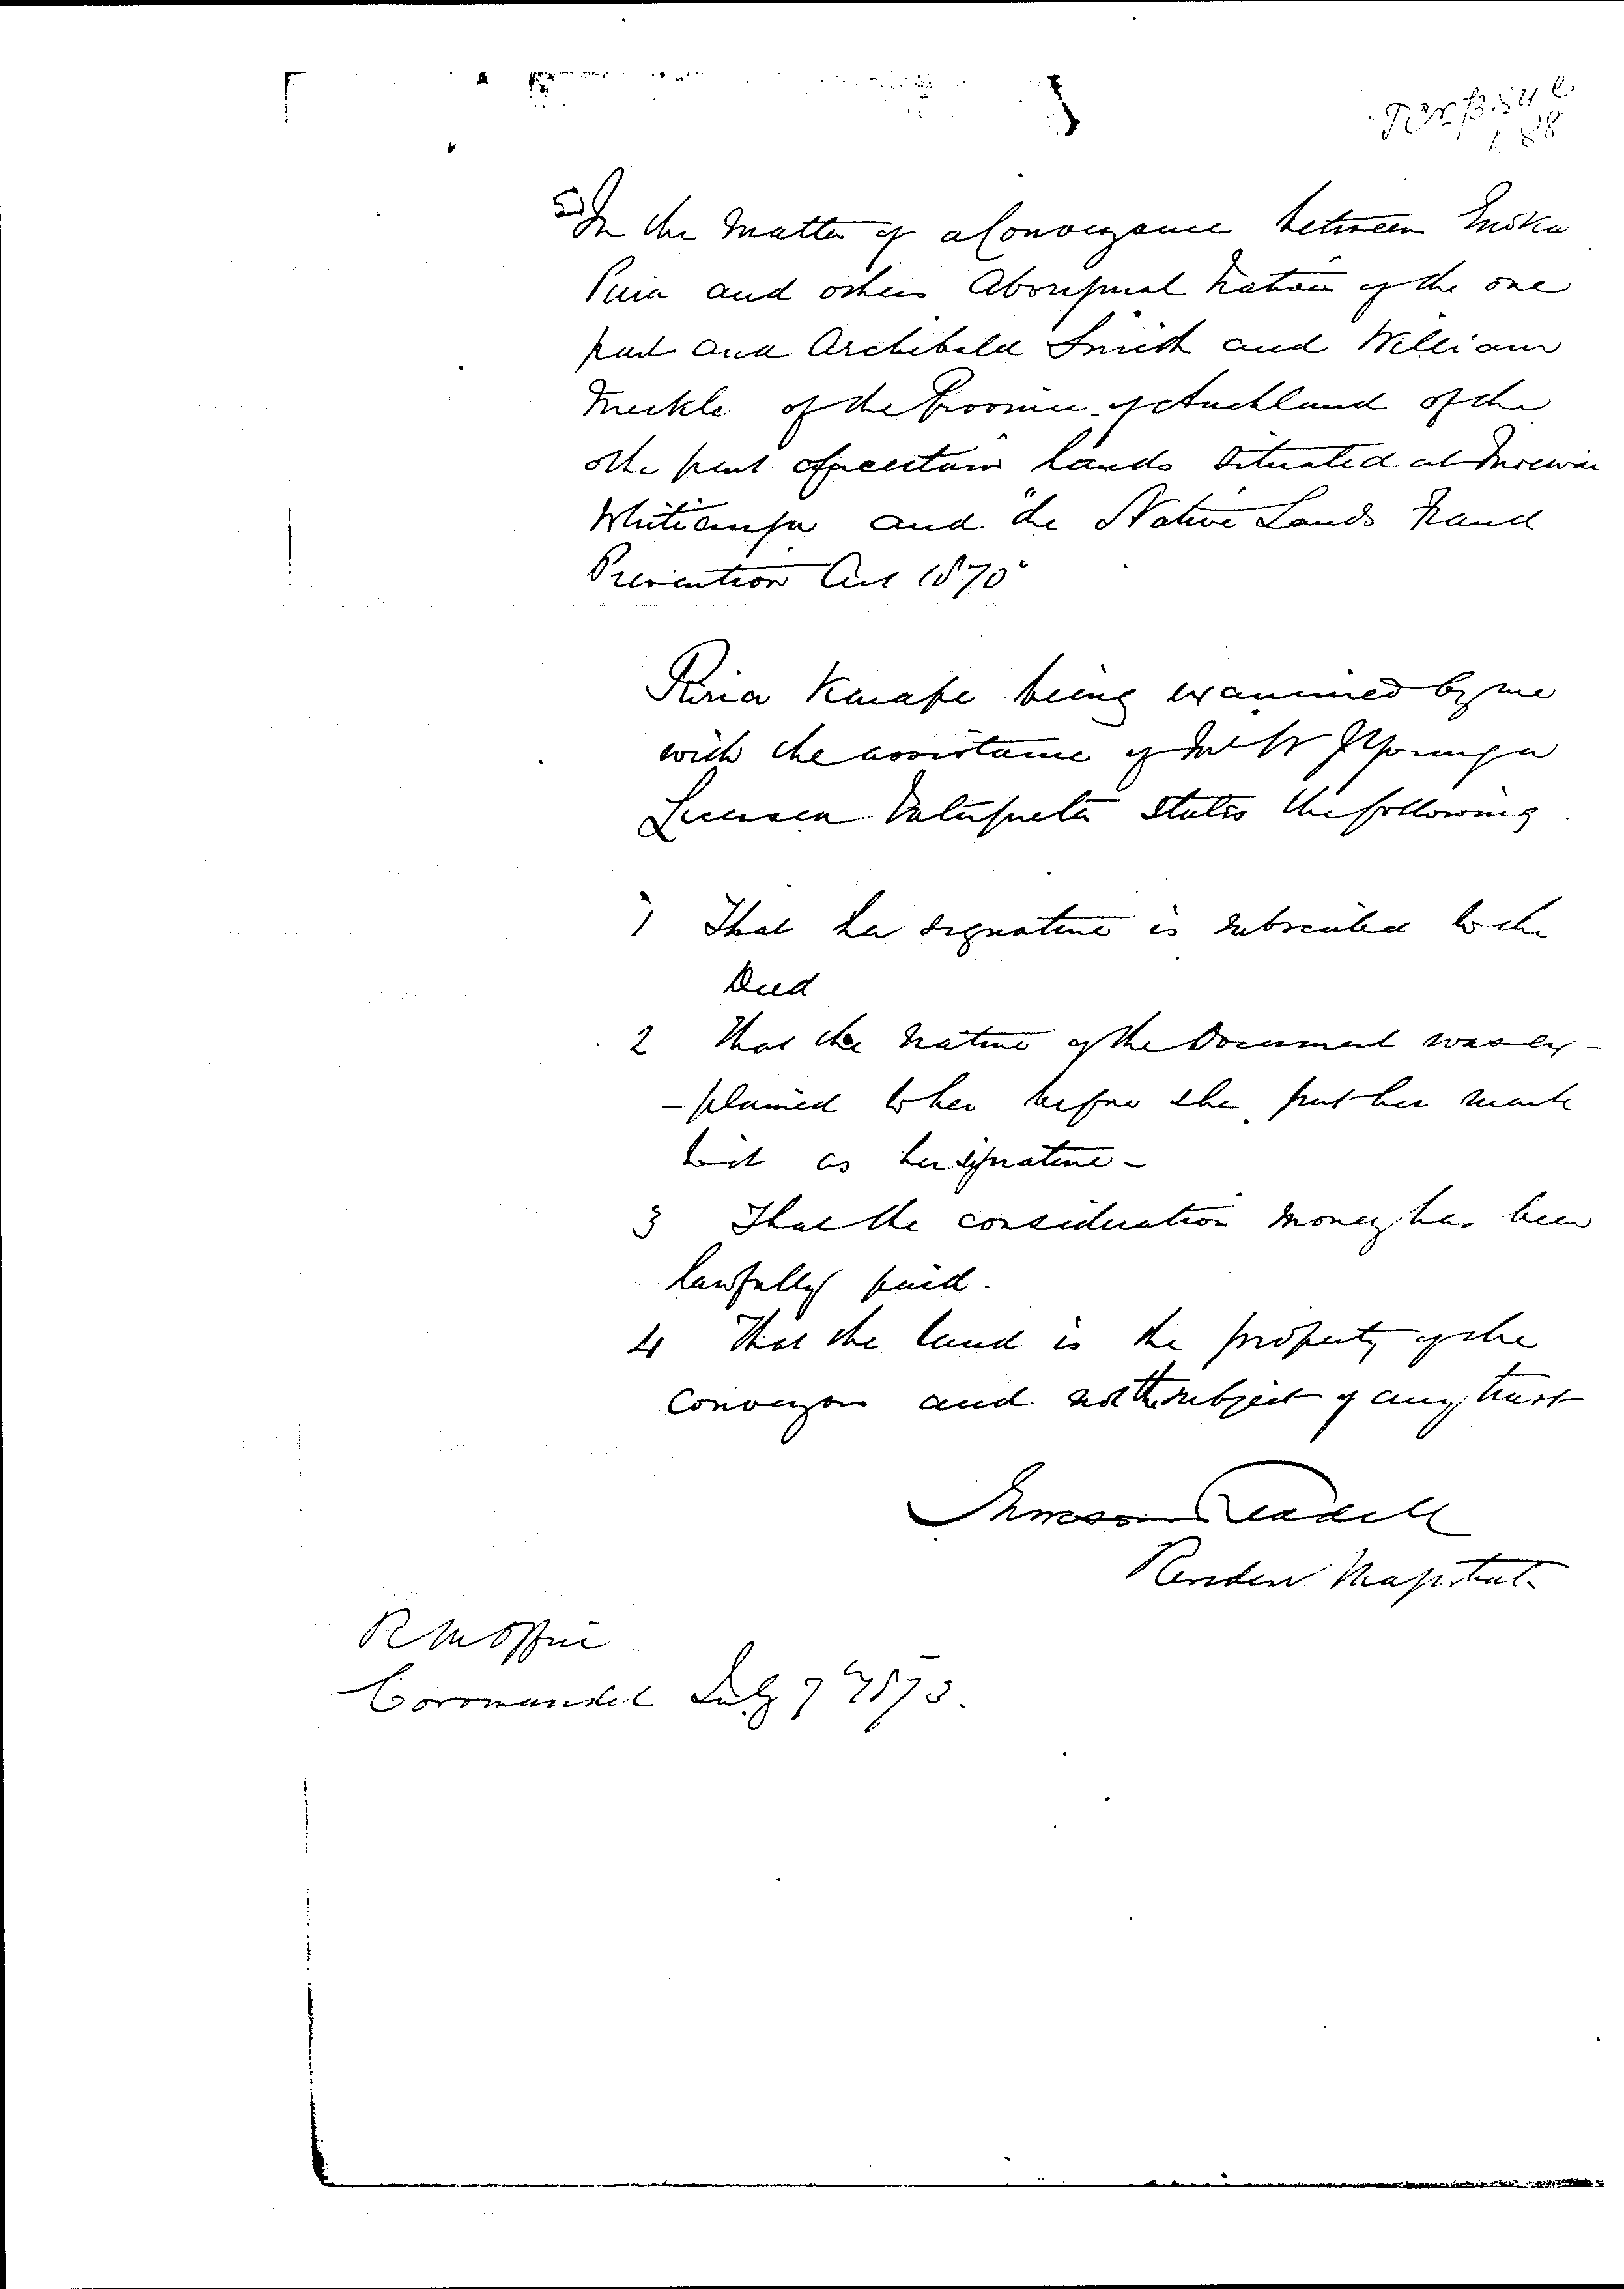 In the Matter of a Conveyance between
Puia and others Aboriginal Natives of the one
part and Archibald Smith and William
Meikle of the Province of Auckland of the
other part of certain lands situated at
Whitianga and "the Native Lands Fraud
Prevention Act 1870"
Piria being examined by me
with the assistance of Mr W
Licensed Interpreter states the following
1 That her signature is subscribed to the
Deed
2 That the nature of the Document was ex-
-plained to her before she put her mark
to it as her signature-
3 That the consideration money has been
lawfully paid.
4 That the land is the property of the
Conveyors and not the subject of any trust
Resident Magistrate
R M Office
Coromandel July 7th 1873.